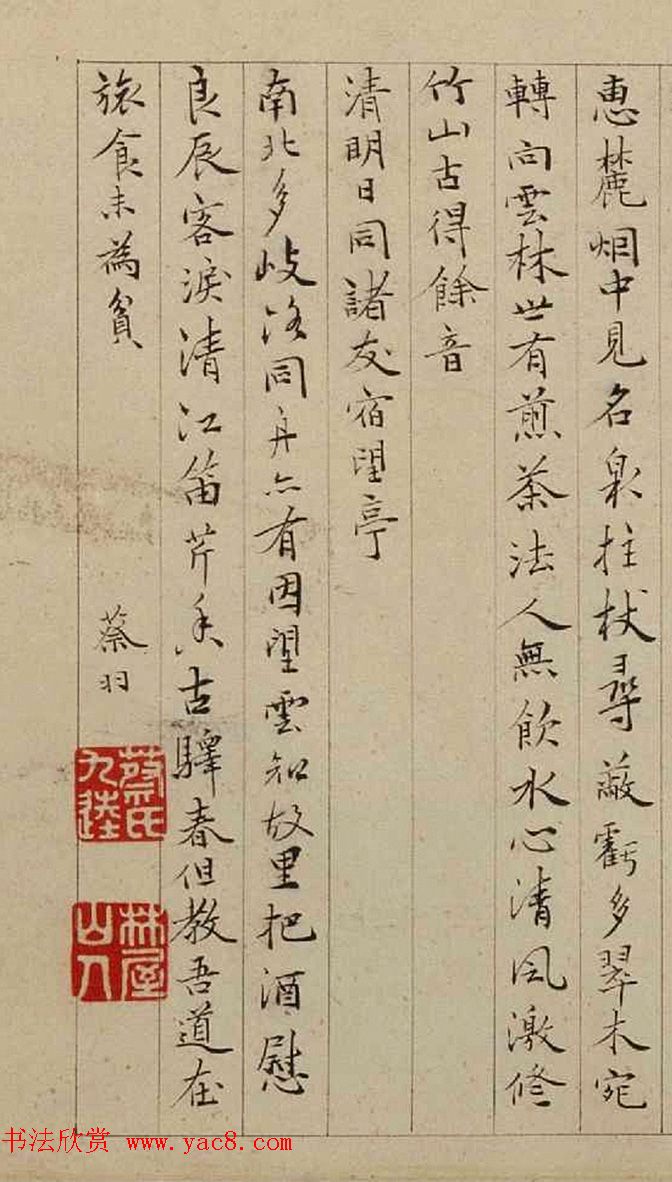 惠麓烟中見名泉拄杖尋蔽虧多翠木宛
轉向雲林世有煎茶法人無飲水心清風激修
竹山古得餘音
清明日同諸友宿望亭
南北多岐路同舟亦有因望雲知故里把酒慰
良辰客淚清江笛芹香古驛春但教吾道在
旅食未為貧
蔡羽
蔡氏九逵
林屋山人
书法欣赏 www.yac8.com